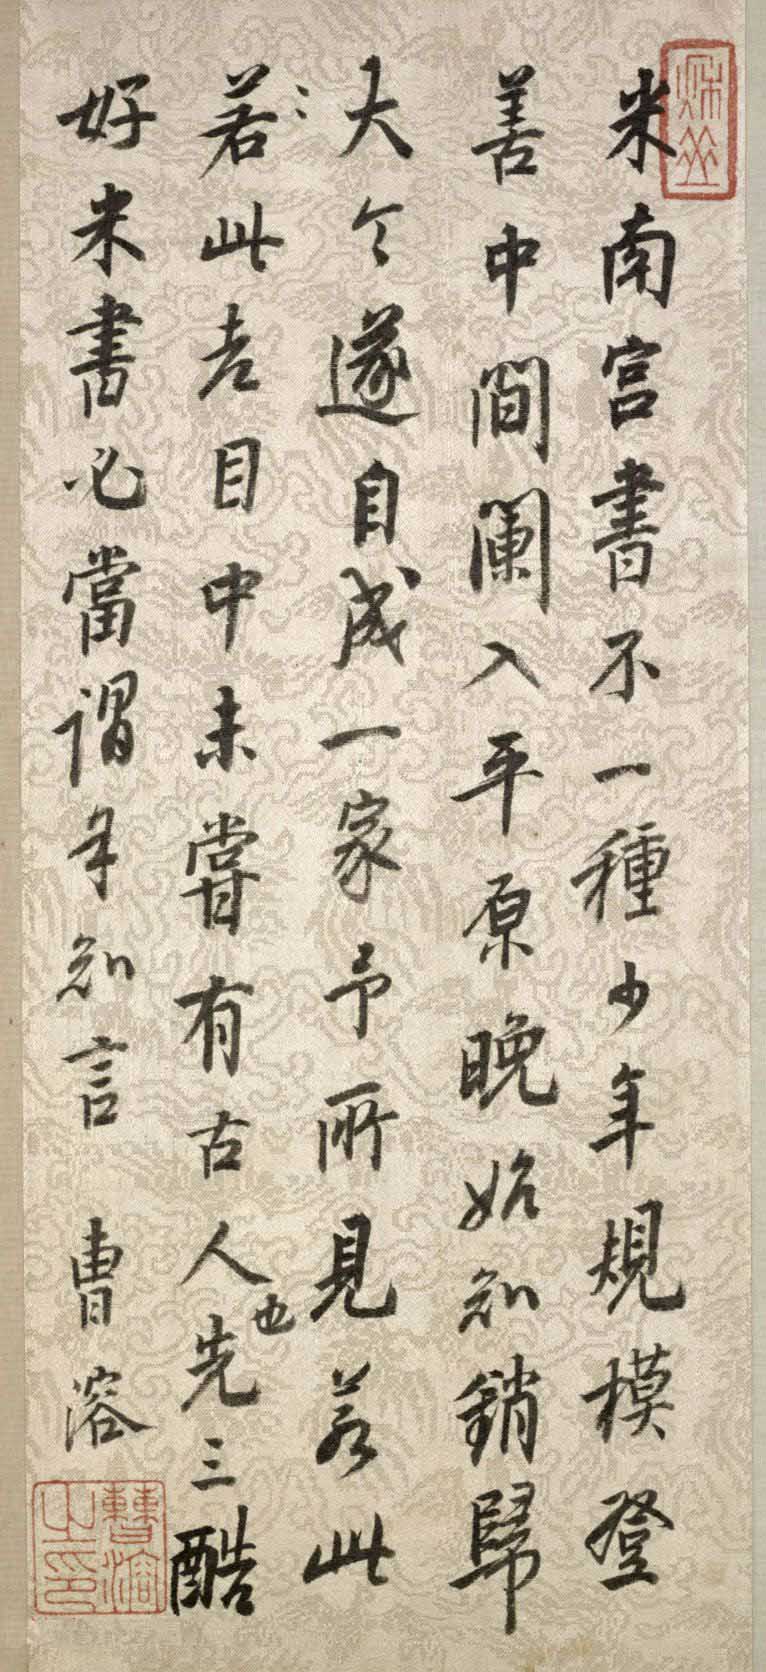 秋岳
米南宮書不一種少年規模登
善中間闌入平原晚始知銷歸
大令遂自成一家予所見若此
若此者目中未嘗有古人也先三酷
好米書必當謂知言 曹溶
曹溶之印